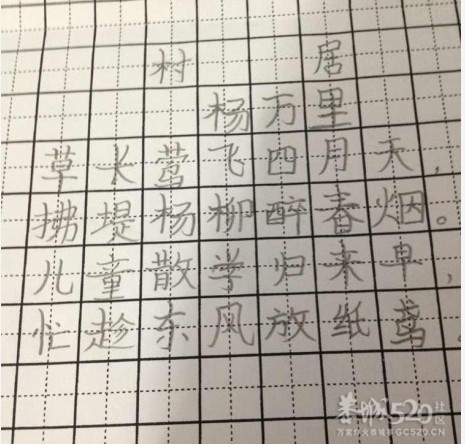 村 居
杨万里
草长莺飞四月天，
拂堤杨柳醉春烟。
儿童散学归来早，
忙趁东风放纸鸢。
520社区
GC520.CN